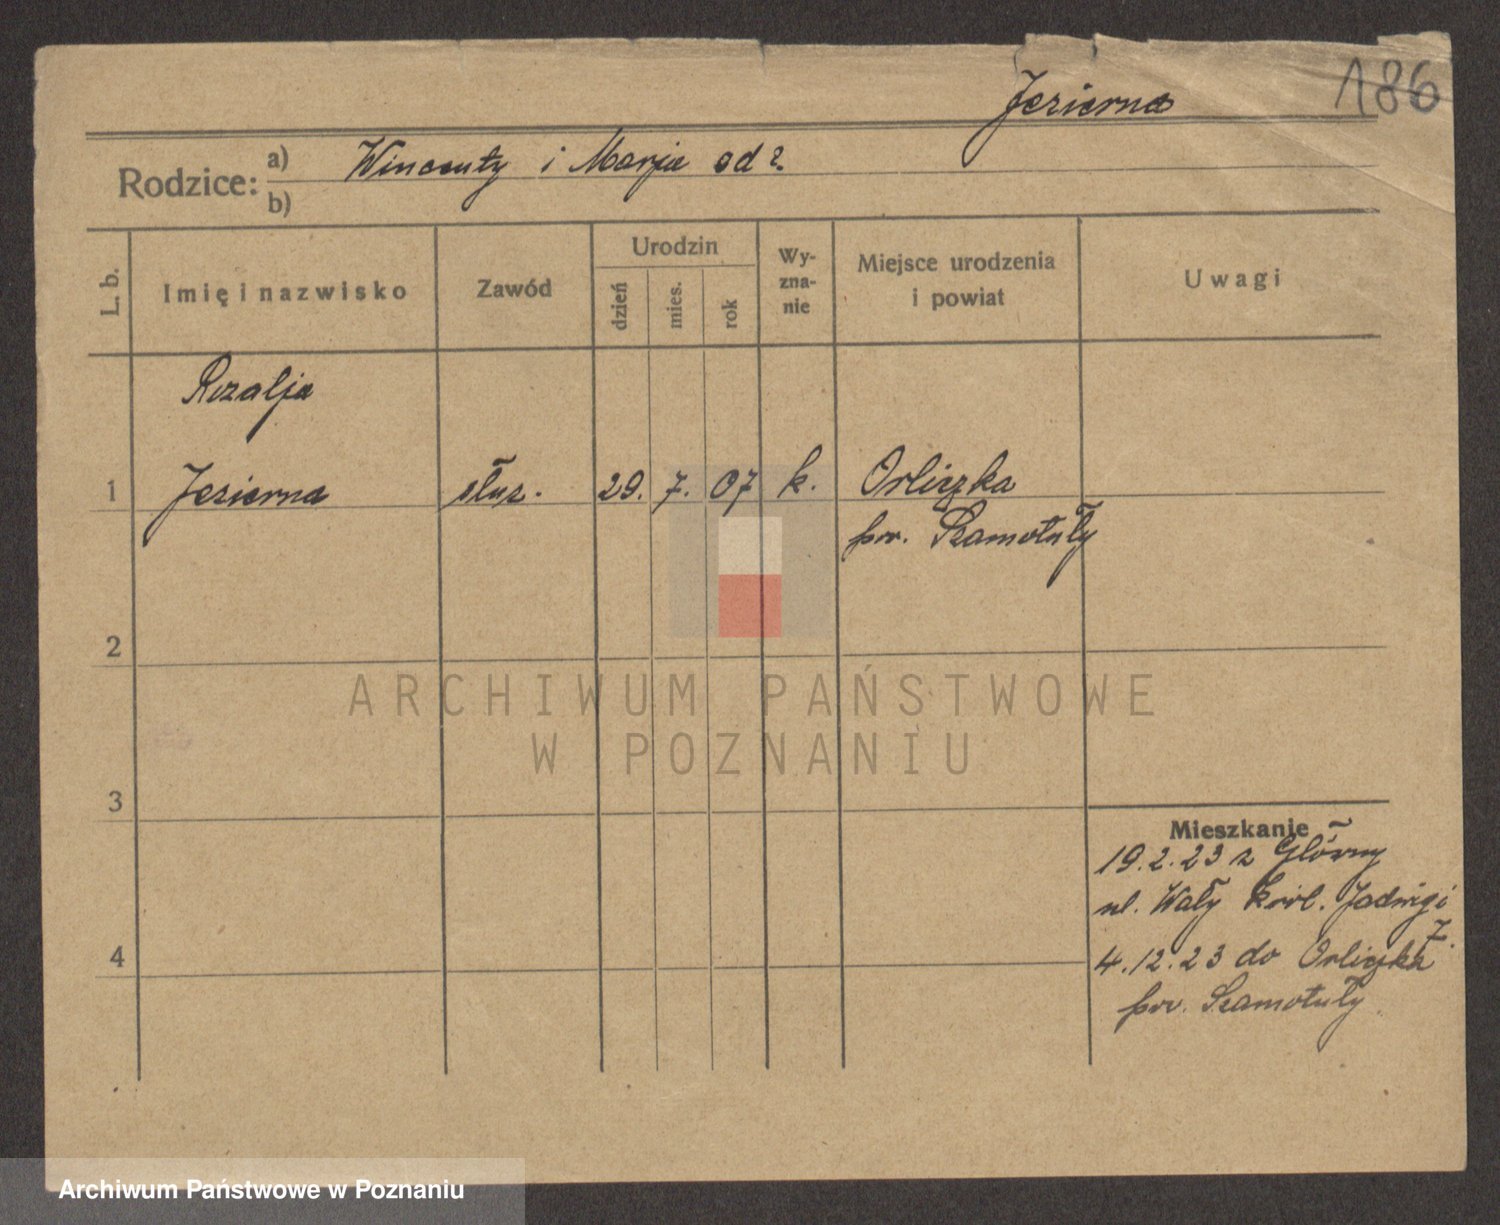 186
Jezierna
Rodzice: a) Wincenty i Marja od ?
b)
L. b.
Imię i nazwisko
Zawód
Urodzin
dzień
mies.
rok
Wy-
zna-
nie
Miejsce urodzenia
i powiat
Uwagi
Rozalja
1 Jezierna służ. 29. 7. 07 k. Orliczka
pow. Szamotuły
2
3
4
Mieszkanie
19.2.23 z Główny
ul. Wały Król. Jadwigi
7.
4.12.23 do Orliczka
pow. Szamotuły
ARCHIWUM PAŃSTWOWE
W POZNANIU
Archiwum Państwowe w Poznaniu